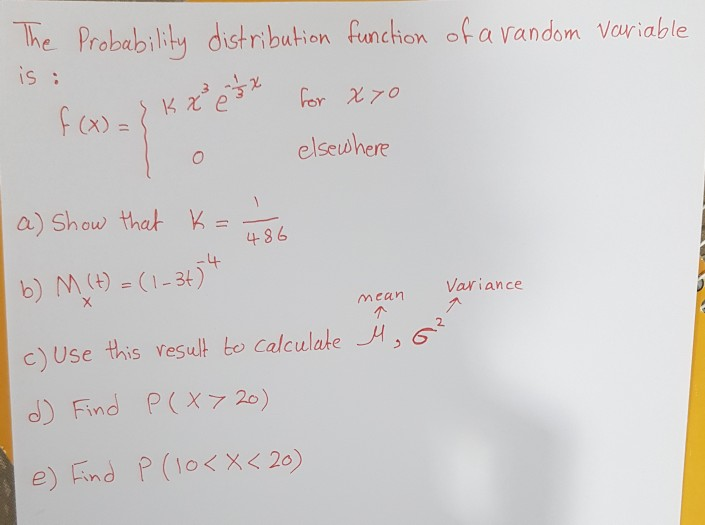 The Probability distribution function of a random variable
is :
f(x) = { K x³ e^{-1/3 x} for x>0
0 elsewhere
a) Show that K = 1/486
b) M_x(t) = (1-3t)^{-4}
mean Variance
c) Use this result to calculate μ, σ²
d) Find P(X > 20)
e) Find P(10 < X < 20)